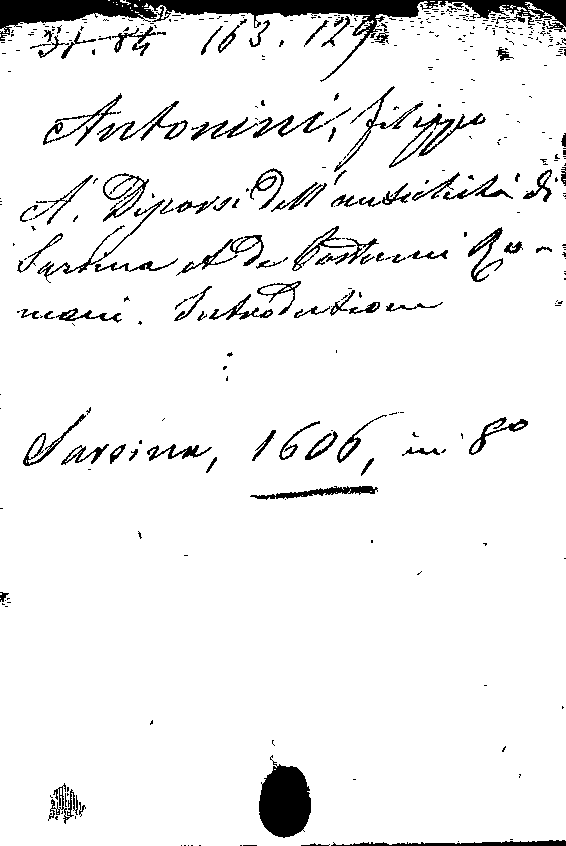 31.84 163.129
Antonini, Filippo
A'. Diporsi dell'antichità di
Sarsina et de Costumi Ro-
mani. Introdutione
Sarsina, 1606, in 8º